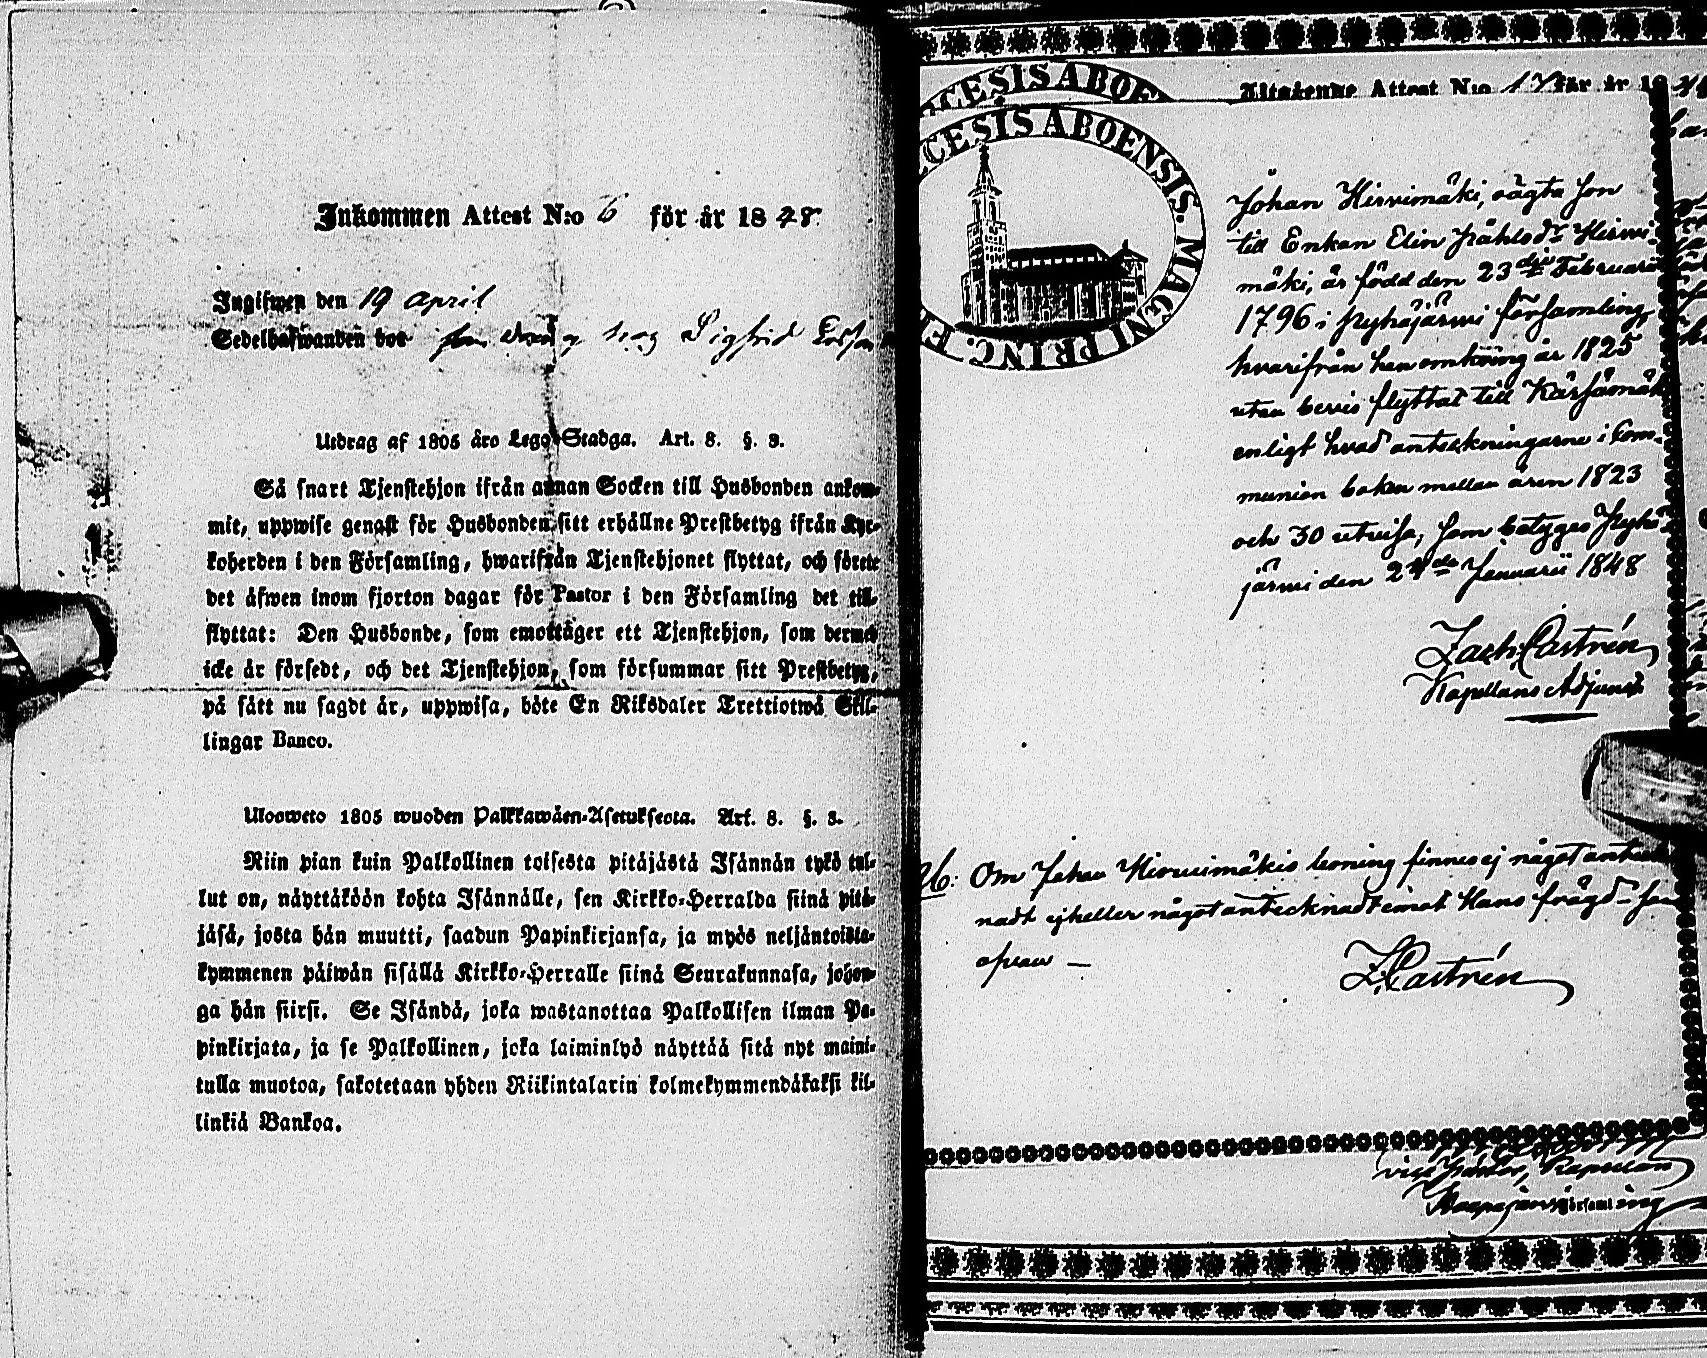 Inkommen Attest N:o 6 för år 1848.
Ingifwen den 19 April
Sedelhafwanden bor som dräng hos Sigfrid
Utdrag af 1805 års Lego-Stadga. Art. 8. §. 3.
Så snart Tjenstehjon ifrån annan Socken till Husbonden ankom-
mit, uppwise genast för Husbonden sitt erhållne Prestbetyg ifrån Kyr-
koherden i den Församling, hwarifrån Tjenstehjonet flyttat, och förete
det äfwen inom fjorton dagar för Pastor i den Församling det till-
flyttat: Den Husbonde, som emottager ett Tjenstehjon, som dermed
icke är försedt, och det Tjenstehjon, som försummar sitt Prestbetyg,
på sätt nu sagdt är, uppwisa, böte En Riksdaler Trettiotwå Skil-
lingar Banco.
Ulosweto 1805 wuoden Palkkawäen-Asetuksesta. Art. 8. §. 3.
Niin pian kuin Palkollinen toisesta pitäjästä Isännän tykö tul-
lut on, näyttäköön kohta Isännälle, sen Kirkko-Herralda siinä pitä-
jäsä, josta hän muutti, saadun Papinkirjansa, ja myös neljäntoista-
kymmenen päiwän sisällä Kirkko-Herralle siinä Seurakunnasa, johon-
ga hän siirsi. Se Isändä, joka wastanottaa Palkollisen ilman Pa-
pinkirjata, ja se Palkollinen, joka laiminlyö näyttää sitä nyt maini-
tulla muotoa, sakotetaan yhden Riikintalarin kolmekymmendäkaksi kil-
linkiä Bankoa.
CESIS ABOE
CESIS ABOENSIS. MAGNI PRINC. F
Utgående Attest N:o 17 för år 18
Johan Hirvimäki, ägta son
till Enkan Elin Påhlsdr Hirvi-
mäki, är född den 23dje Februarii
1796 i Pyhäjärvi församling,
hvarifrån han omkring år 1825
utan bevis flyttat till Kärsämäki
enligt hvad anteckningarne i Com-
munion boken mellan åren 1823
och 30 utvisa, som betygas Pyhä-
järvi den 24de Januarii 1848
Zach. Castrén
Kapellans Adjunct
Om Johan Hirvimäkis lysning finnes ej något anteck-
nadt ej heller något antecknadt emot Hans frägd
Z. Castrén
vice Pastor, Kapellan
Haapajärvi församling